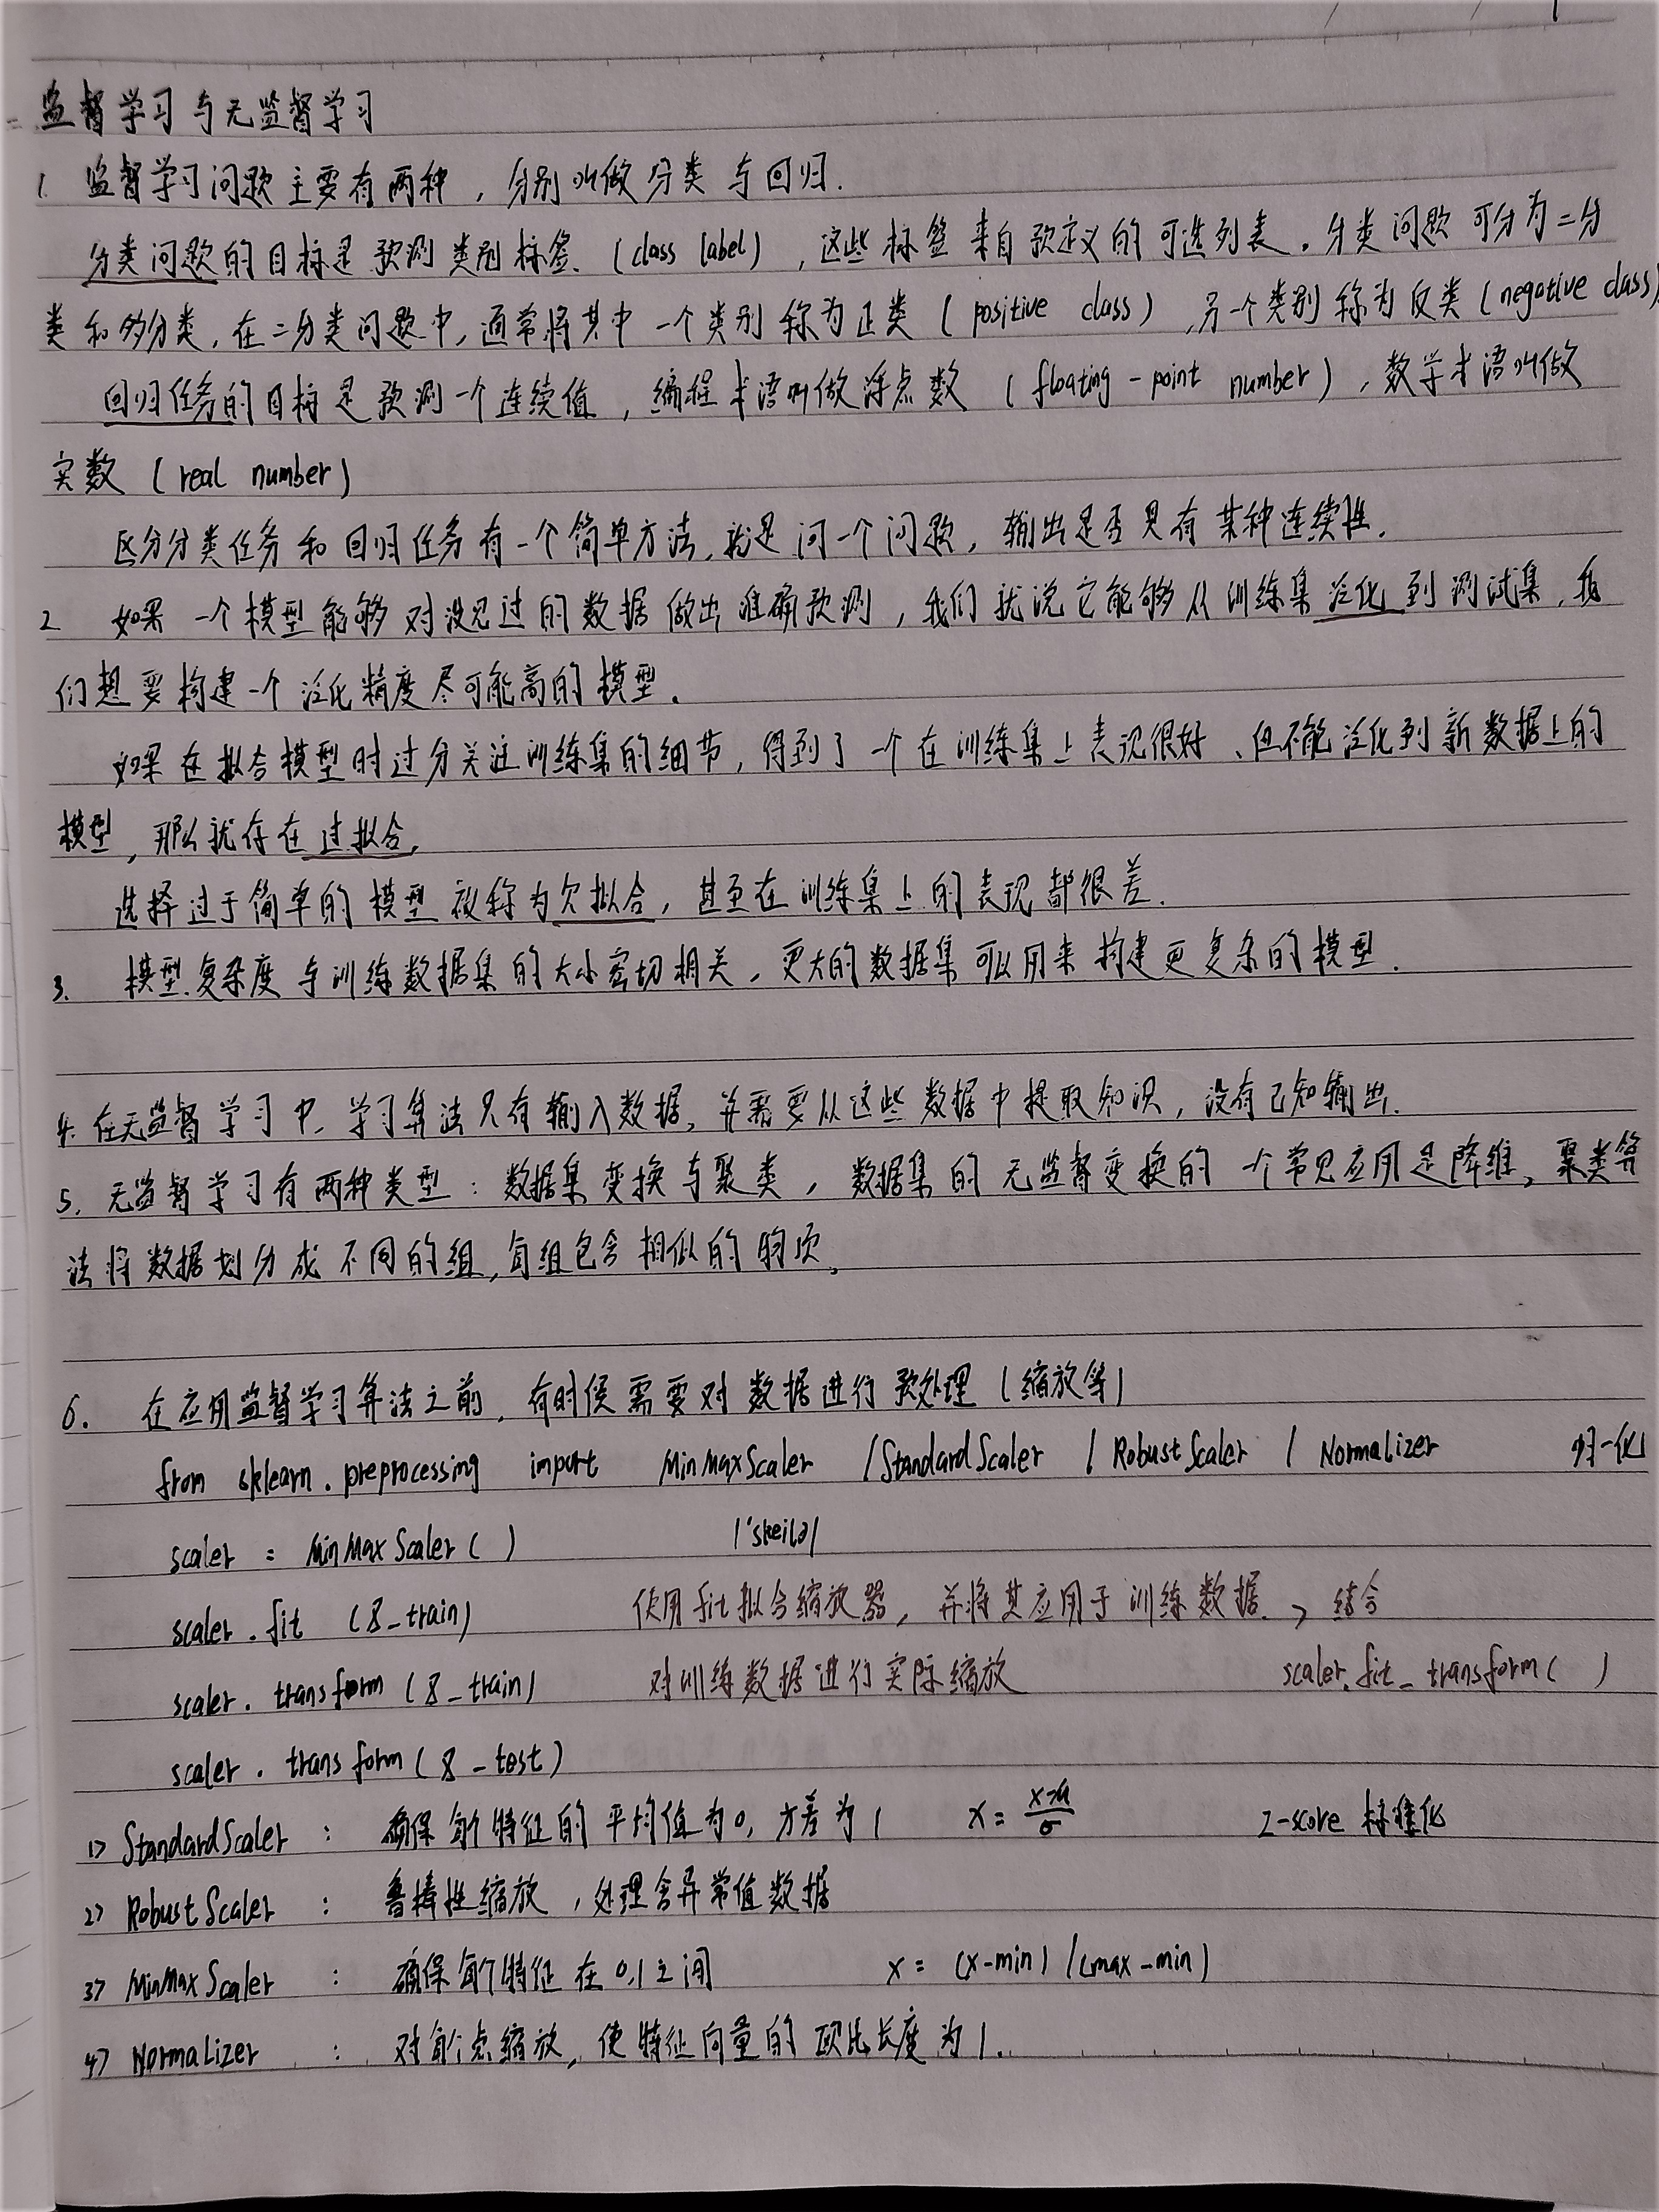 监督学习与无监督学习
1. 监督学习问题主要有两种，分别叫做分类与回归.
分类问题的目标是预测类别标签.(class label)，这些标签来自预定义的可选列表.分类问题可分为二分
类和多分类,在二分类问题中,通常将其中一个类别称为正类(positive class),另一个类别称为反类(negative class)
回归任务的目标是预测一个连续值，编程术语叫做浮点数(floating-point number)，数学术语叫做
实数(real number)
区分分类任务和回归任务有一个简单方法,就是问一个问题，输出是否具有某种连续性.
2 如果一个模型能够对没见过的数据做出准确预测，我们就说它能够从训练集泛化到测试集,我
们想要构建一个泛化精度尽可能高的模型.
如果在拟合模型时过分关注训练集的细节,得到了一个在训练集上表现很好、但不能泛化到新数据上的
模型,那么就存在过拟合,
选择过于简单的模型被称为欠拟合,甚至在训练集上的表现都很差.
3. 模型复杂度与训练数据集的大小密切相关,更大的数据集可以用来构建更复杂的模型.
4. 在无监督学习中,学习算法只有输入数据,并需要从这些数据中提取知识,没有已知输出.
5. 无监督学习有两种类型:数据集变换与聚类,数据集的无监督变换的一个常见应用是降维,聚类算
法将数据划分成不同的组,每组包含相似的物项,
6. 在应用监督学习算法之前,有时候需要对数据进行预处理(缩放等)
from sklearn.preprocessing import MinMaxScaler /StandardScaler / RobustScaler / Normalizer 归一化
scaler = MinMaxScaler( ) /'skeilə/
scaler.fit (X_train) 使用fit拟合缩放器,并将其应用于训练数据. > 结合
scaler.transform(X_train) 对训练数据进行实际缩放 scaler.fit_transform( )
scaler.transform(X_test)
1> StandardScaler : 确保每个特征的平均值为0,方差为1 x=(x-μ)/σ Z-score 标准化
2> RobustScaler : 鲁棒性缩放,处理含异常值数据
3> MinMaxScaler : 确保每个特征在0,1之间 x= (x-min)/(max-min)
4> Normalizer : 对每个点缩放,使特征向量的欧氏长度为1.